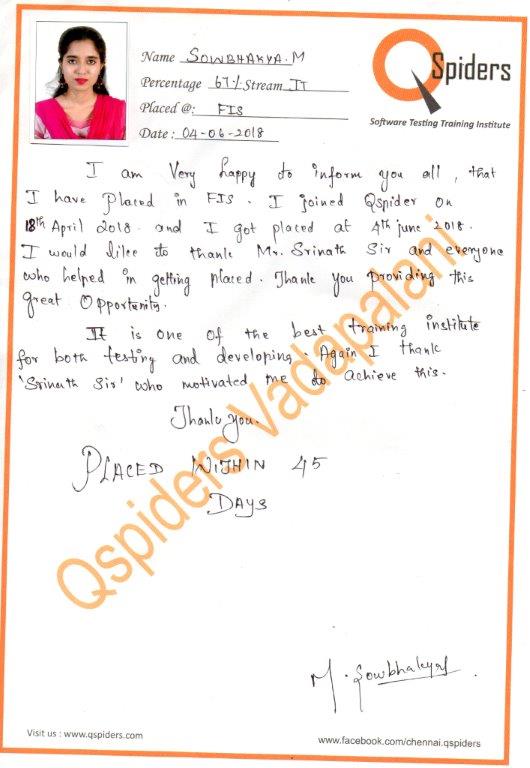 Name SOWBHAKYA.M
Percentage 67% Stream IT
Placed @: FIS
Date: 04-06-2018
QSpiders
Software Testing Training Institute
I am Very happy to inform you all, that
I have Placed in FIS. I joined Qspider on
18th April 2018. and I got placed at 4th june 2018.
I would like to thank Mr. Srinath Sir and everyone
who helped in getting placed. Thank you Providing this
great Opportunity.
It is one of the best training institute
for both testing and developing. Again I thank
'Srinath Sir' who motivated me to achieve this.
Thank you.
PLACED WITHIN 45
DAYS
Qspiders Vadapalani
M. Sowbhakya
Visit us : www.qspiders.com
www.facebook.com/chennai.qspiders